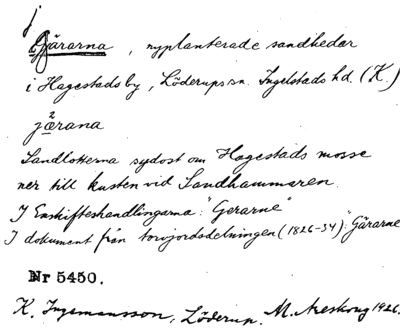 j
Gärarna, nyplanterade sandhedar
i Hagestads by, Löderups sn. Ingelstads hd. (K.)
2
jærana
Sandlotterna sydost om Hagestads mosse
ner till kusten vid Sandhammaren.
I Enskifteshandlingarna: "Gerarne"
I dokument från torvjordsdelningen (1826-34): Gärarne
Nr 5450.
K. Ingemansson, Löderup. M. Areskoug 1926.